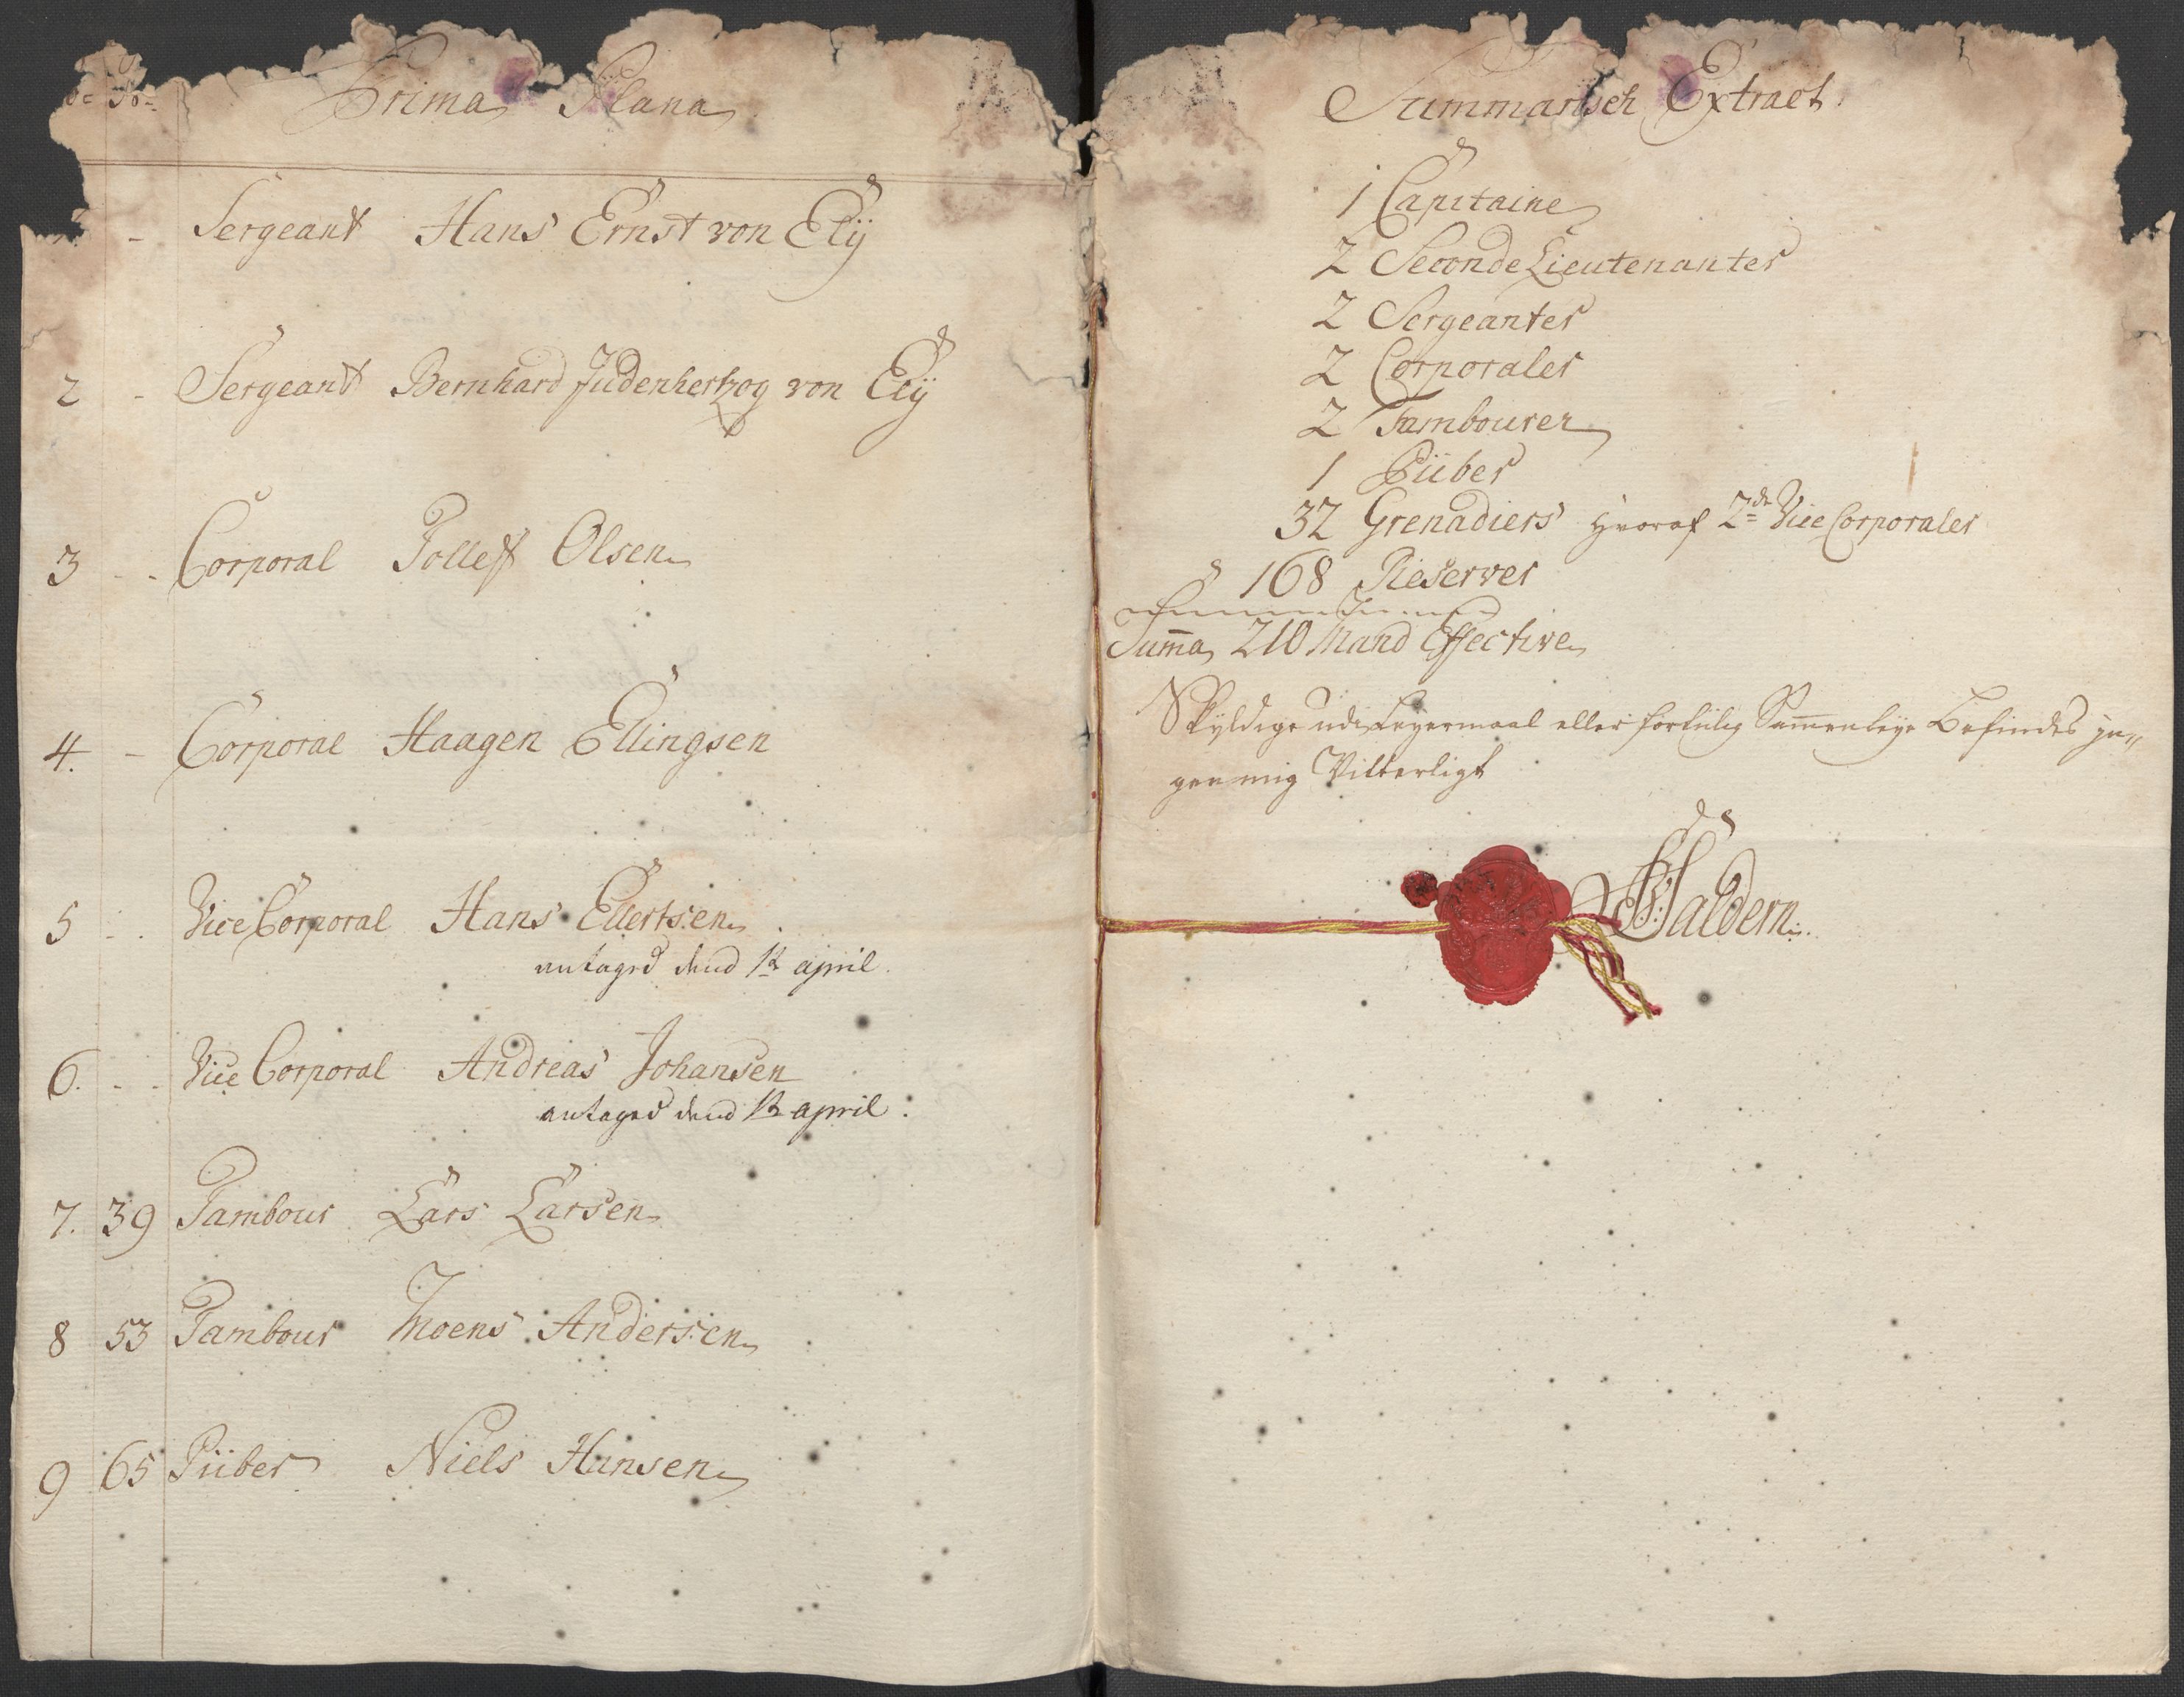 Prima Plana
Sergeant Hans Ernst von Elÿ
2 - Sergeant Bernhard Judenhertzog von Elÿ
3 - - Corporal Tollef Olsen
4. - Corporal Haagen Ellingsen
5 - . Vice Corporal Hans Ellertsen
antaged dend 1te april.
6. - - Vice Corporal Andreas Johansen
antaged dend 1te april.
7. 39 Tambour Lars Larsen
8 53 Tambour Moens Andersen
9 65 Piiber Niels Hansen
Summarisch Extract.
1 Capitaine
2 Seconde Lieutenanter
2 Sergeanter
2 Corporaler
2 Tambourer
1 Piiber
32 Grenadiers hvoraf 2de Vice Corporaler
168 Reserver
Suma 210 Mand Effective
Skyldige udi Leyermaal eller for tiilig Sammenleye befindes in„
gen mig Vitterligt
Saldern